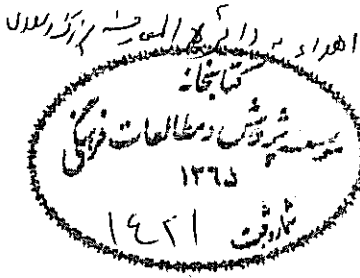 اهداء به دائرة المعارف بزرگ اسلامی
کتابخانه
موسسه پژوهش و مطالعات فرهنگی
۱۳۶۵
شماره ثبت ۱۴۲۱